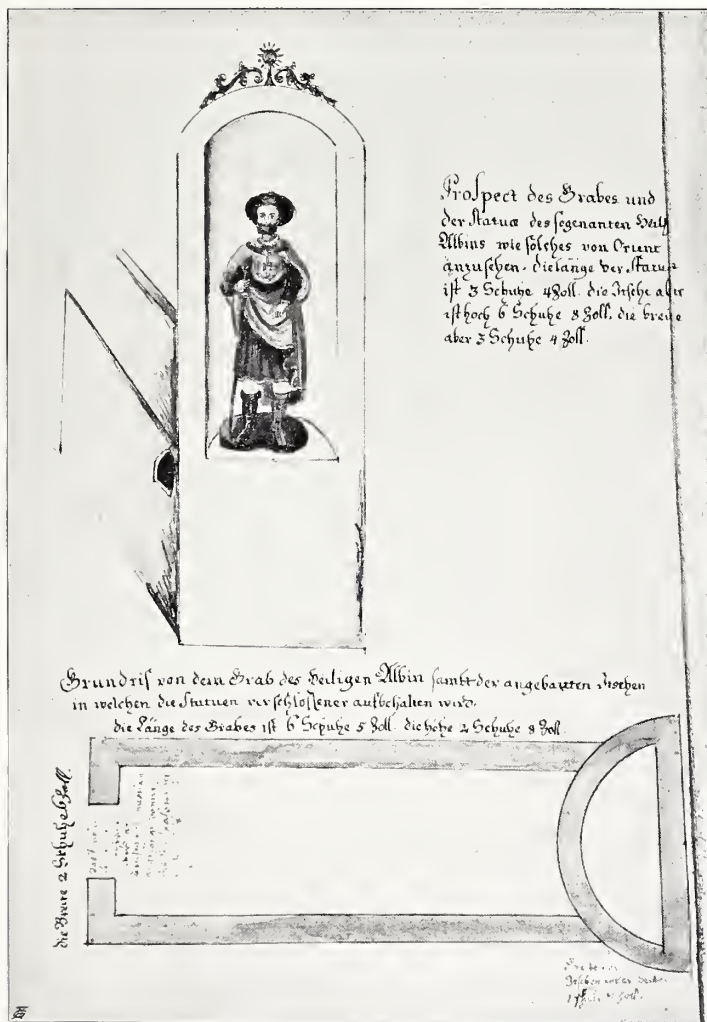 Prospect des Grabes und
der Statuæ des sogenanten Heil:
Albins wie solches von Orient
anzusehen. die länge der Statuæ
ist 3 Schuhe 4 Zoll. die Nische aber
ist hoch 6 Schuhe 8 Zoll. die breite
aber 3 Schuhe 4 Zoll.
Grundris von dem Grab des Heiligen Albin sambt der angebauten Nischen
in welchen die Statuen verschlossener aufbehalten wird.
die Länge des Grabes ist 6 Schuhe 5 Zoll. die höhe 2 Schuhe 8 Zoll.
die Breite 2 Schuhe 6 Zoll.